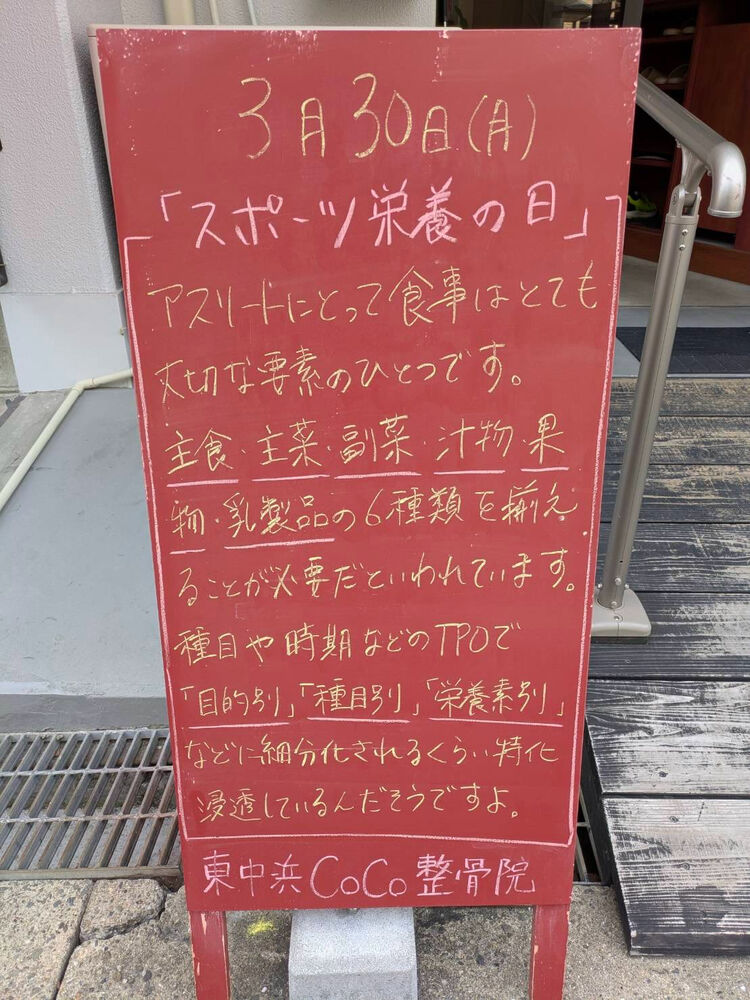 3月30日(月)
「スポーツ栄養の日」
アスリートにとって食事はとても
大切な要素のひとつです。
主食・主菜・副菜・汁物・果
物・乳製品の6種類を揃え
ることが必要だといわれています。
種目や時期などのTPOで
「目的別」「種目別」「栄養素別」
などに細分化されるくらい特化
浸透しているんだそうですよ。
東中浜CoCo整骨院